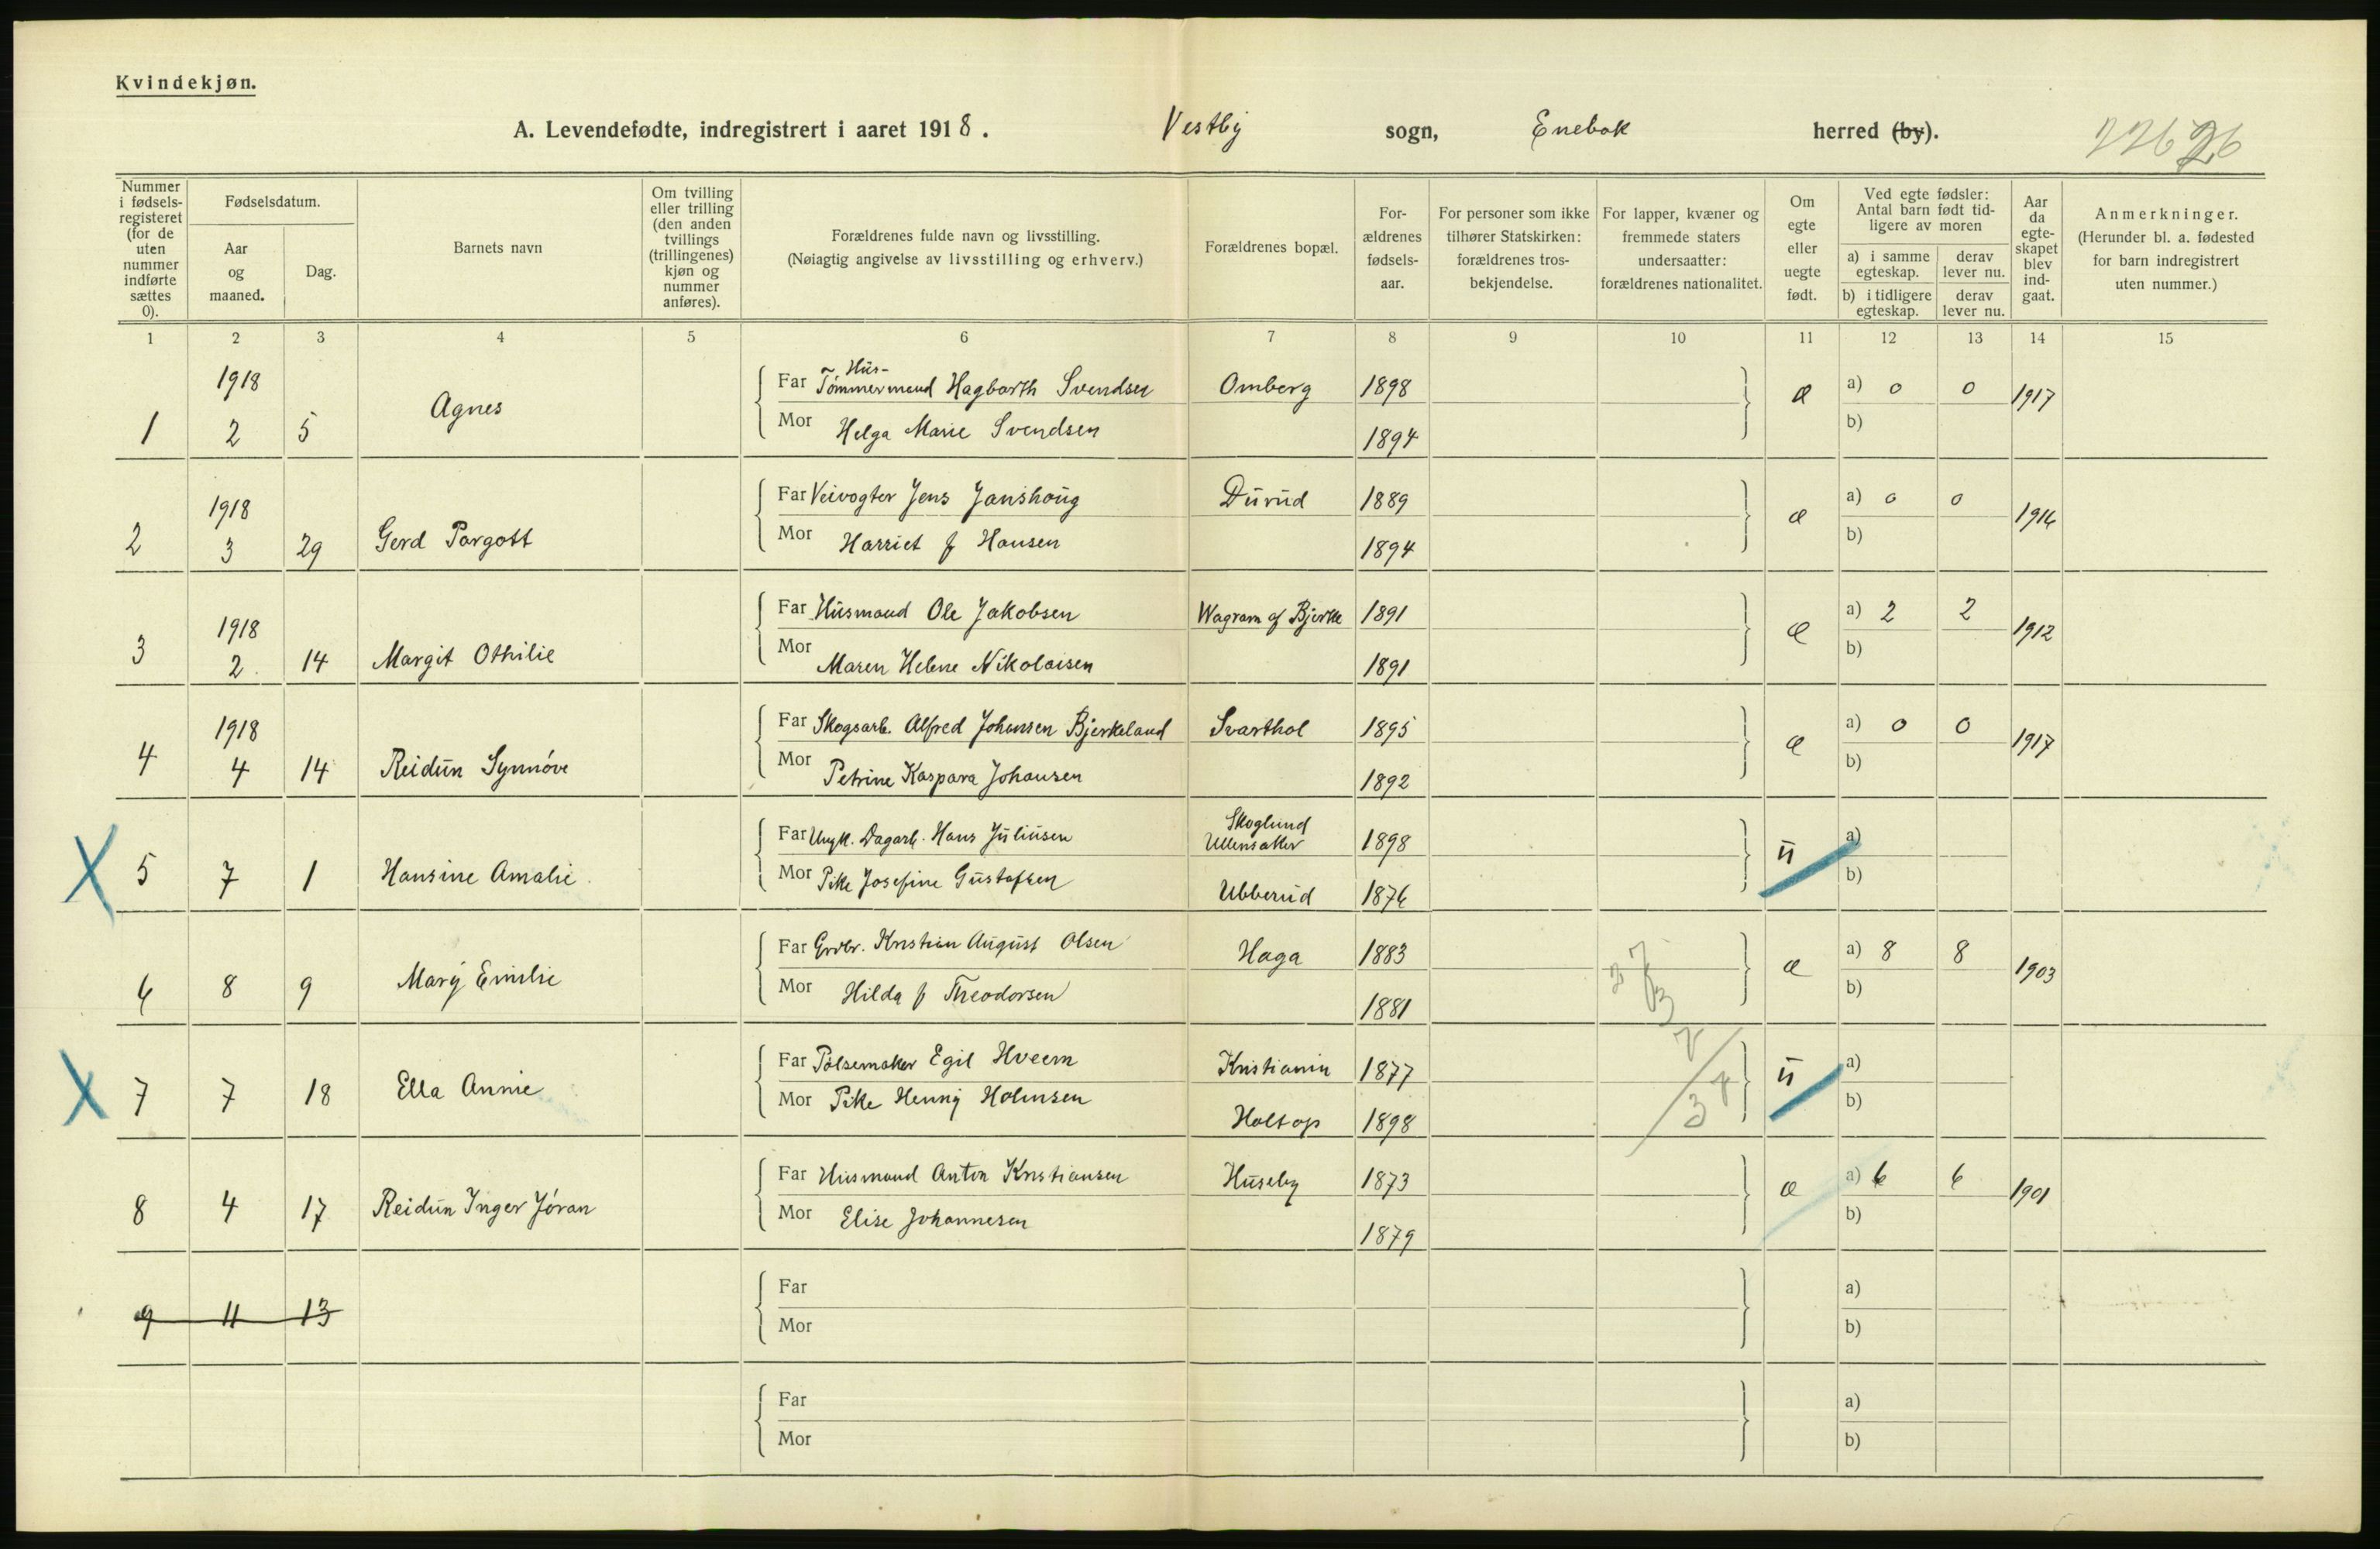 Kvindekjøn.
A. Levendefødte, indregistrert i aaret 1918. Vestby sogn, Enebak herred (by).
Nummer i fødsels-registeret (for de uten nummer indførte sættes 0).
Fødselsdatum.
Aar og maaned.
Dag.
Barnets navn
Om tvilling eller trilling (den anden tvillings (trillingenes) kjøn og nummer anføres).
Forældrenes fulde navn og livsstilling.
(Nøiagtig angivelse av livsstilling og erhverv.)
Forældrenes bopæl.
For-ældrenes fødsels-aar.
For personer som ikke tilhører Statskirken: forældrenes tros-bekjendelse.
For lapper, kvæner og fremmede staters undersaatter: forældrenes nationalitet.
Om egte eller uegte født.
Ved egte fødsler: Antal barn født tid-ligere av moren
a) i samme egteskap. derav lever nu.
b) i tidligere egteskap. derav lever nu.
Aar da egte-skapet blev ind-gaat.
Anmerkninger.
(Herunder bl. a. fødested for barn indregistrert uten nummer.)
1 2 3 4 5 6 7 8 9 10 11 12 13 14 15
1918 Far Hus- Tømmermand Hagbarth Svendsen Omberg 1898 æ a) 0 0 1917
1 2 5 Agnes Mor Helga Marie Svendsen 1894 b)
1918 Far Veivogter Jens Janshaug Durud 1889 æ a) 0 0 1916
2 3 29 Gerd Margott Mor Harriet f Hansen 1894 b)
1918 Far Husmand Ole Jakobsen Wagram af Bjerke 1891 æ a) 2 2 1912
3 2 14 Margit Othilie Mor Maren Helene Nikolaisen 1891 b)
1918 Far Skogsarb. Alfred Johansen Bjerkeland Svarthol 1895 æ a) 0 0 1917
4 4 14 Reidun Synnøve Mor Petrine Kaspara Johansen 1892 b)
Far Ungk. Dagarb. Hans Juliusen Skoglund Ullensaker 1898 u a)
5 7 1 Hansine Amalie Mor Pike Josefine Gustafsen Ubberud 1876 b)
Far Grdbr. Kristian August Olsen Haga 1883 æ a) 8 8 1903
6 8 9 Mary Emilie Mor Hilda f Theodorsen 1881 b)
Far Pølsemaker Egil Hveem Kristiania 1877 u a)
7 7 18 Ella Annie Mor Pike Henny Holmsen Holtop 1898 b)
Far Husmand Anton Kristiansen Huseby 1873 æ a) 6 6 1901
8 4 17 Reidun Inger Jøran Mor Elise Johannesen 1879 b)
Far a)
9 11 13 Mor b)
Far a)
Mor b)